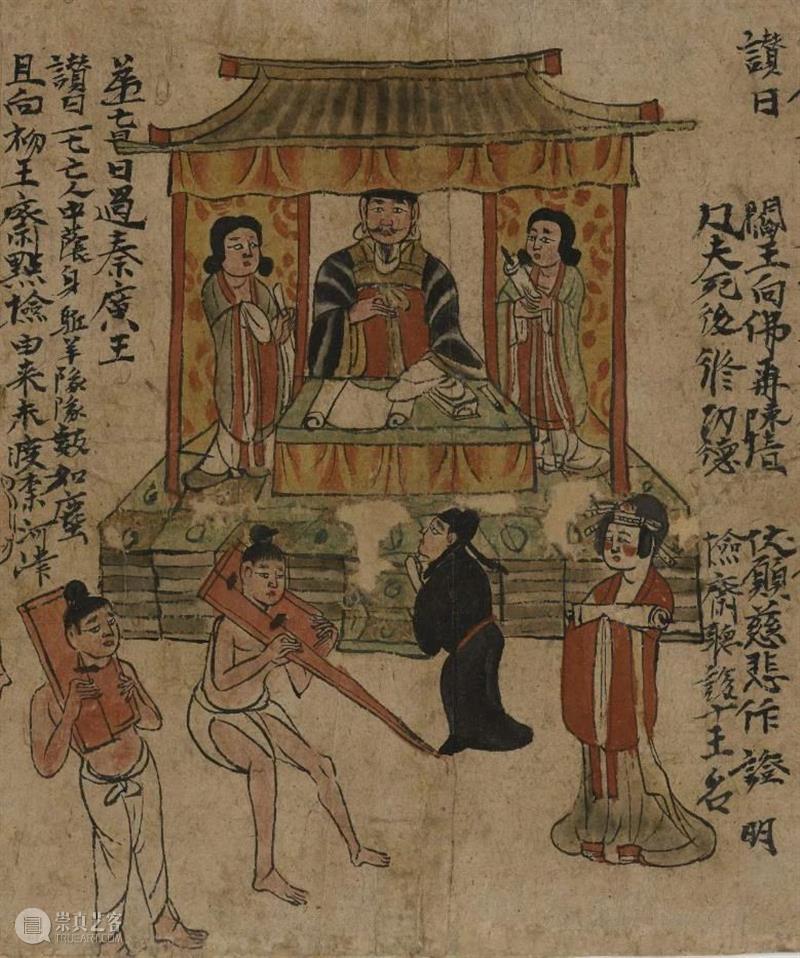 讃曰
閻王向佛再陳情 伏願慈悲作證明
凡夫死後修功德 撿齋聽說十王名
苐一七日過秦廣王
讃曰 一七亡人中蔭身 駈羊隊隊數如塵
且向初王齋點撿 由来未渡柰河
崇真艺客
TRUEART.COM